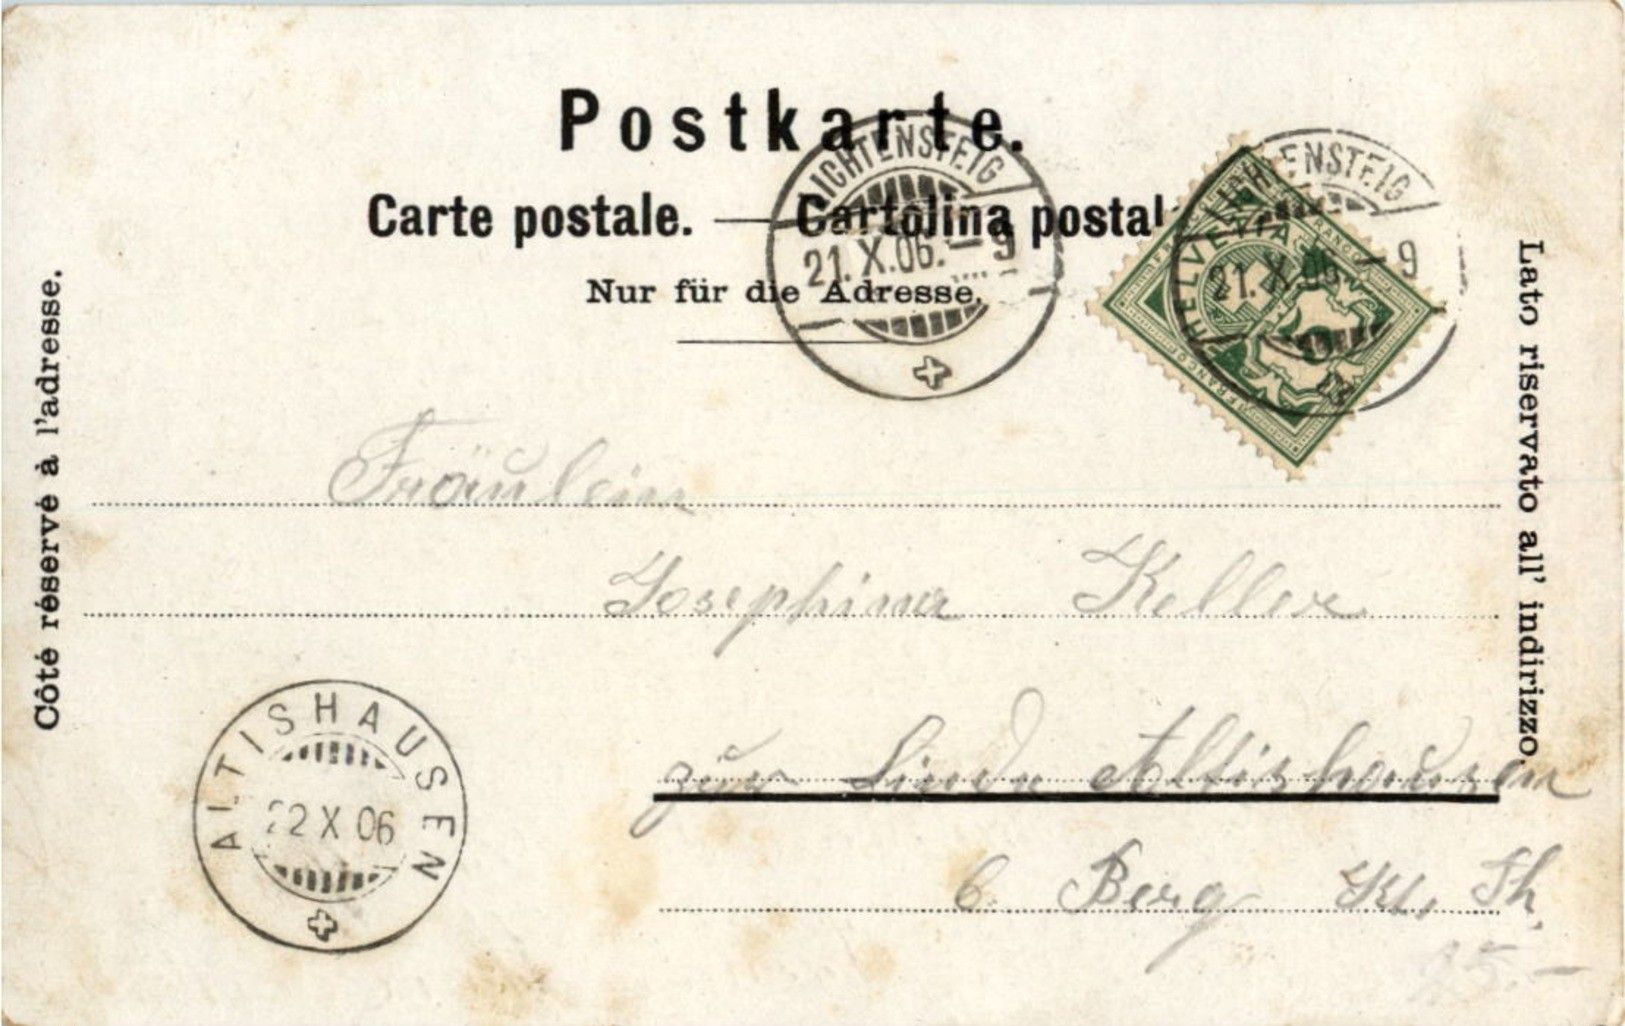 Postkarte.
Carte postale. — Cartolina postal
Nur für die Adresse.
Côté réservé à l'adresse.
Lato riservato all' indirizzo.
LICHTENSTEIG
21.X.06.–9
LICHTENSTEIG
21.X.06.–9
HELVETIA
FRANCO
5
Fräulein
Josephina Keller
zur Linde Altishausen
b. Berg Kt. Th.
ALTISHAUSEN
22 X 06
25.–